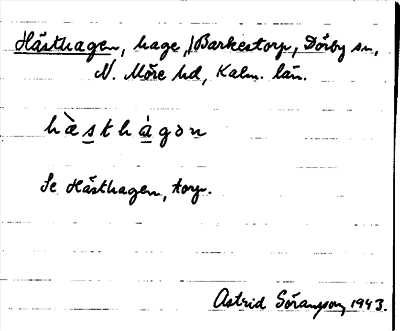 Hästhagen, hage, Barkestorp, Dörby sn,
N. Möre hd, Kalm. län.
hæ̀sthàgən
Se Hästhagen, torp.
Astrid Göransson, 1943.